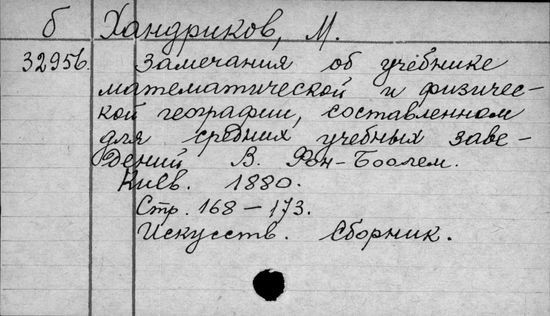 б Хандриков, М.
32956. Замечания об учебнике
математической и физичес-
кой географии, составленном
для средних учебных заве-
дений В. Фон-Боолем.
Киев. 1880.
Стр. 168-173.
Искусств. Сборник.